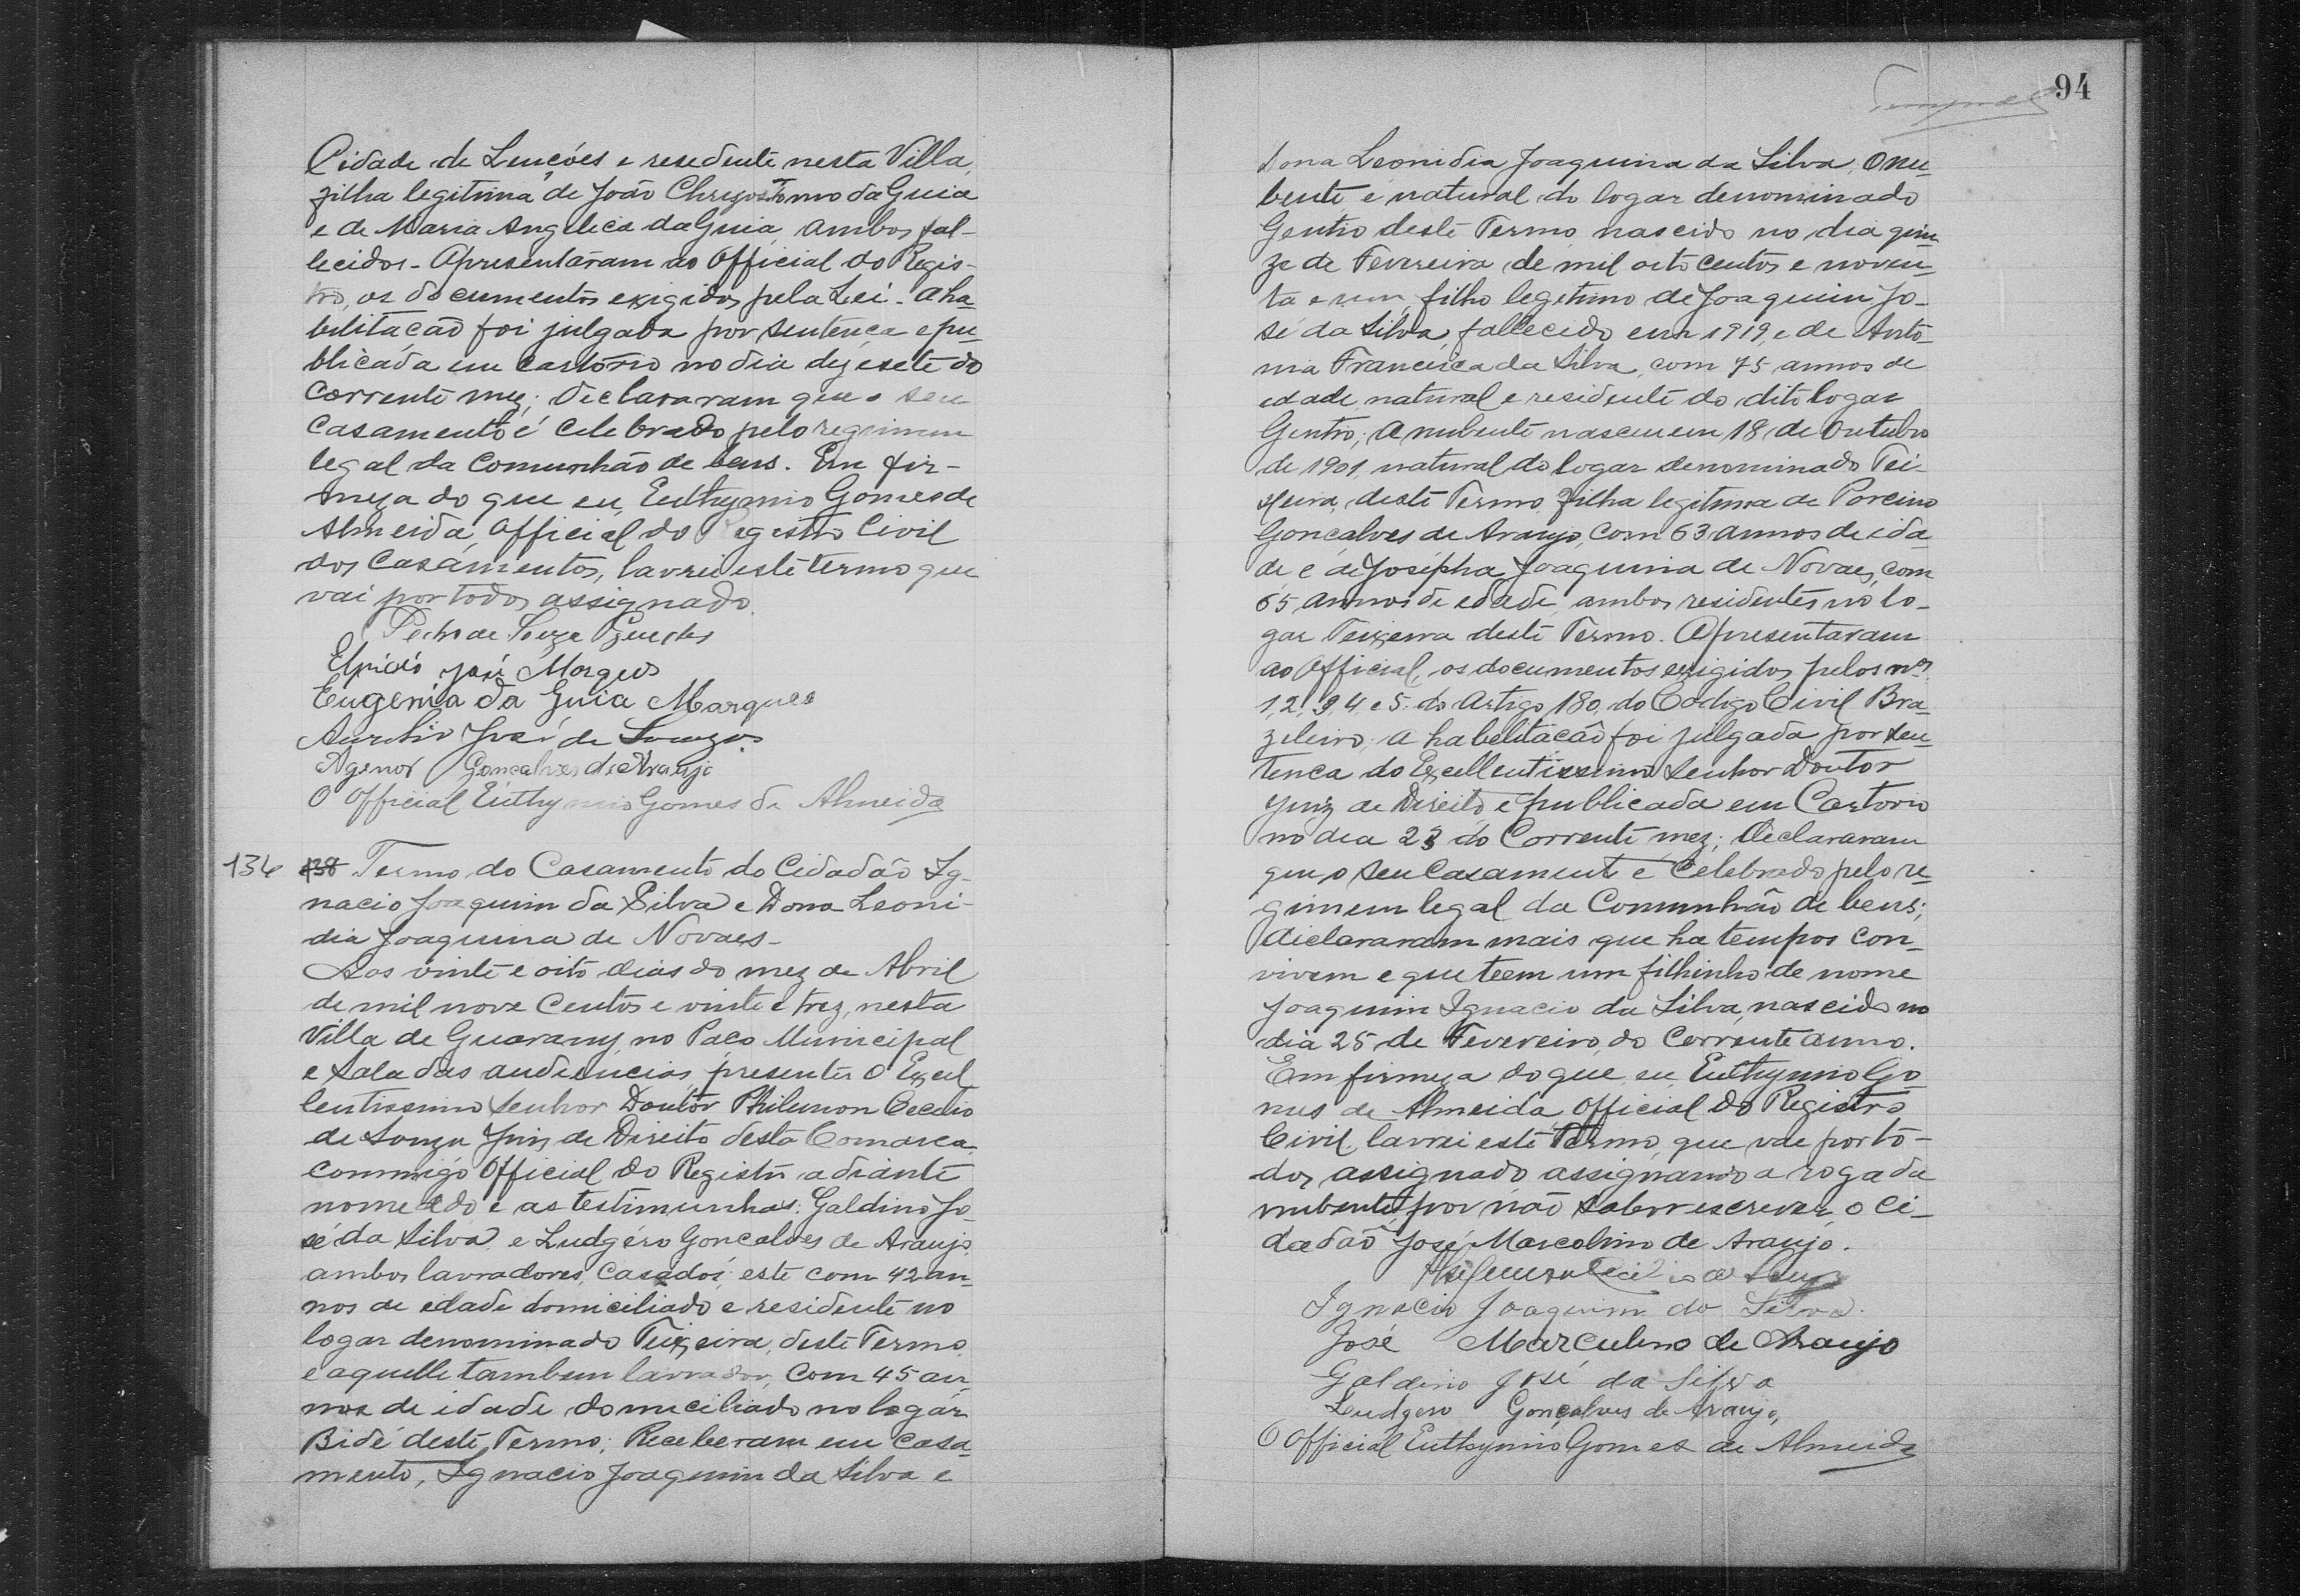 Cidade de Lençóes e resedente nesta Villa,
filha legitima de João Chrizostomo da Guia
e de Maria Angelica da Guia, ambos fal-
lecidos - Apresentáram ao Official do Regis-
tro, os documentos exigidos pela Lei - A ha-
bilitação foi julgada por sentença e pu-
blicada em Cartorio no dia dezesete do
Corrente mez; Declararam que o seu
Casamento é Celebrado pelo regimem
legal da Comunhão de bens. Em fir-
meza do que eu, Euthymio Gomes de
Almeida, Official do Registro Civil
dos Casámentos, lavrei este termo que
vai por todos assignado.
Pedro de Souza Guedes
Elpidio José Marques
Eugenia da Guia Marques
Aurelio José de Souza
Agenor Gonçalves de Araujo
O Official Euthymio Gomes de Almeida
134 138 Termo do Casamento do Cidadão Ig-
nacio Joaquim da Silva e Dona Leoni-
dia Joaquina de Novaes -
Aos vinte e oito dias do mez de Abril
de mil nove Centos e vinte e trez, nesta
Villa de Guarany, no Paço Municipal
e Sala das audiencias, presentes O Excel
lentissimo Senhor Doutor Philemon Cecilio
de Souza Juiz de Direito desta Comarca,
Commigo Official do Registro adiante
nomeado e as testimunhas: Galdino Jo-
sé da Silva e Ludgéro Gonçalves de Araujo,
ambos lavradores, Casados, este com 42 an-
nos de edade domiciliado e residente no
logar denominado Teixeira, deste Termo,
e aquelle tambem lavrador, com 45 an-
nos de idade domiciliado no logar
Bidé deste Termo; Receberam em Casa-
mento, Ignacio Joaquim da Silva e
94
Dona Leonidia Joaquina da Silva, O nu-
bente e natural do logar denominado
Gentio deste Termo nascido no dia quin-
ze de Fevereira de mil oito centos e noven-
ta e um, filho legitimo de Joaquim Jo-
sé da Silva, fallecido em 1919, e de Anto-
nia Francisca da Silva, com 75 annos de
edade, natural e residente do dito logar
Gentio; A nubente nasceu em 18 de Outubro
de 1901, natural do logar denominado Tei-
xeira, deste Termo, filha legitima de Porcino
Gonçalves de Araujo, com 63 annos de ida-
de, e de Josépha Joaquina de Novaes, com
65 annos de edade, ambos residentes no lo-
gar Teixeira deste Termo. Apresentaram
ao Official, os documentos exigidos pelos nos
1, 2, 3, 4 e 5. do Artigo 180, do Codigo Civil Bra-
zileiro; a habelitação foi julgada por sen-
tença do Excellentissimo Senhor Doutor
Juiz de Direito e publicada em Cartorio
no dia 23 do Corrente mez; Declararam
que o seu Casamento é Celebrado pelo re-
gimem legal da Comunhão de bens;
declararam mais que ha tempos con-
vivem e que teem um filhinho de nome
Joaquim Ignacio da Silva, nascido no
dia 25 de Fevereiro, do Corrente anno.
Em firmeza do que, eu, Euthymio Go-
mes de Almeida Official do Registro
Civil lavrei este Termo, que vae por to-
dos assignado assignando a roga da
nubente por não saber escrever, o Ci-
dadão José Marcolino de Araujo.
Ignacio Joaquim da Silva.
José Marculino de Araujo
Galdino José da Silva
Ludgero Gonçalves de Araujo,
O Official Euthymio Gomes de Almeida